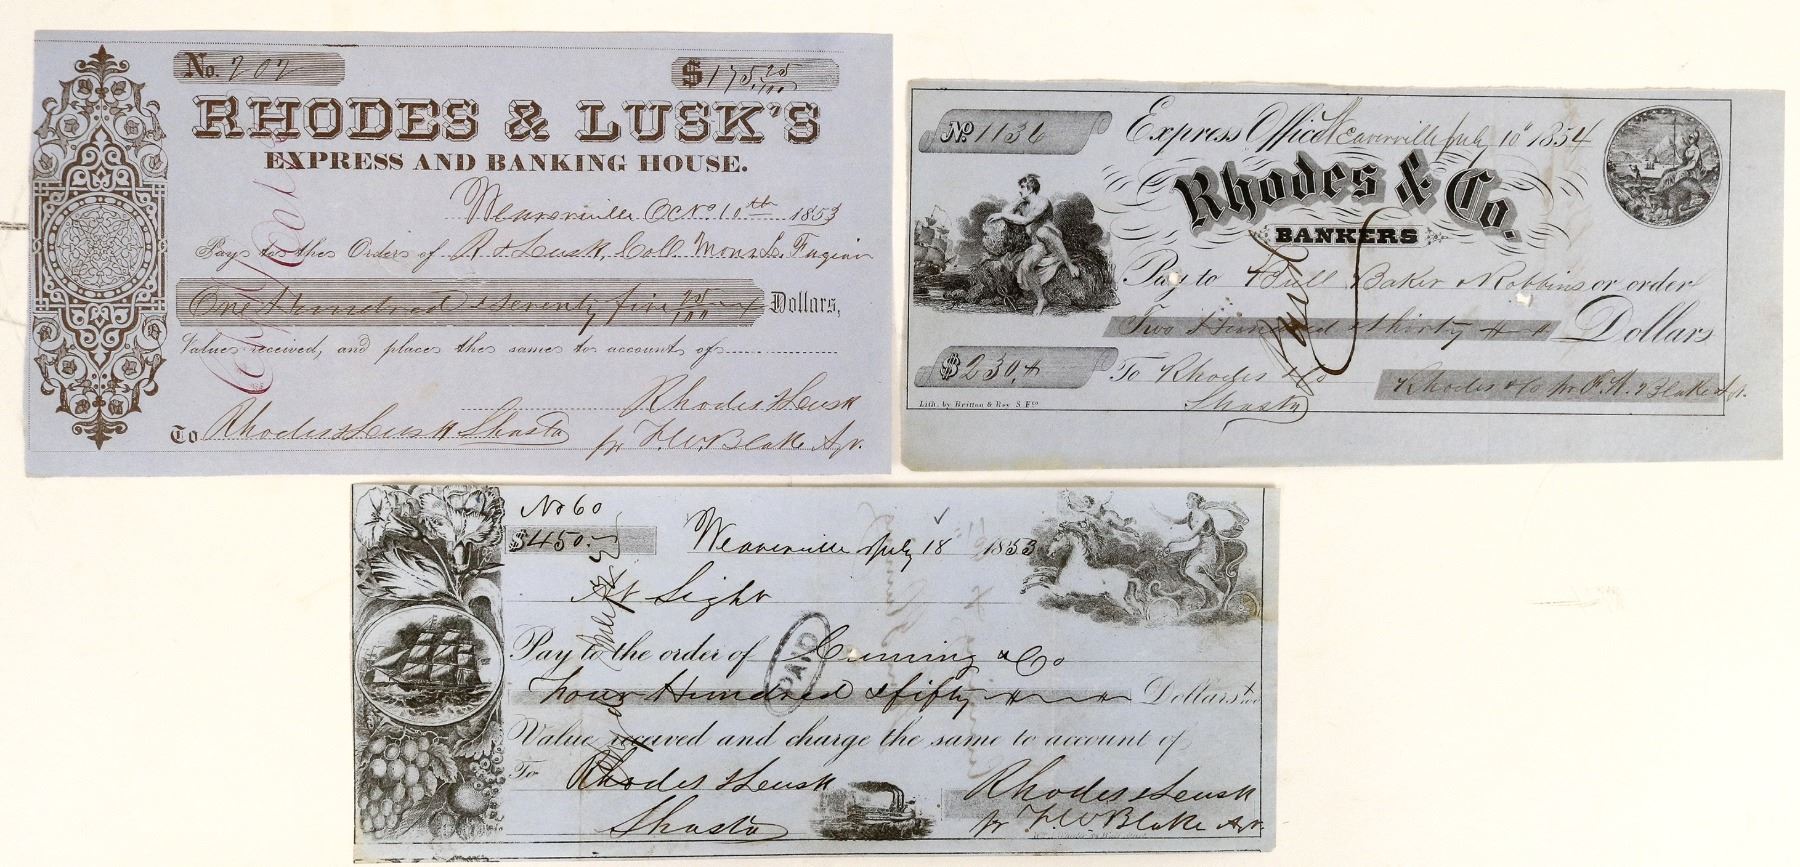 No. 202
$175 25/100
RHODES & LUSK'S
EXPRESS AND BANKING HOUSE.
Weaverville Oct 10th 1853
Pay to the Order of R & Lusk, Coll.
One Hundred & seventy five 25/100 Dollars,
Value received, and place the same to account of
Rhodes & Lusk
To Rhodes & Lusk Shasta
pr F. W. Blake Agt.
No 1136
Express Office Weaverville July 10th 1854
Rhodes & Co.
BANKERS
Pay to Bull Baker & Robbins or order
Two Hundred & thirty Dollars
$230.
To Rhodes & Co
Shasta
Rhodes & Co pr F. W. Blake Agt.
Lith. by Britton & Rey S. F.co
Paid
No 60
$450.
Weaverville July 18 1853
At Sight
Pay to the order of Cuming & Co
Four Hundred & fifty Dollars
PAID
Value received and charge the same to account of
To Rhodes & Lusk
Shasta
Rhodes & Lusk
pr F W Blake Agt.